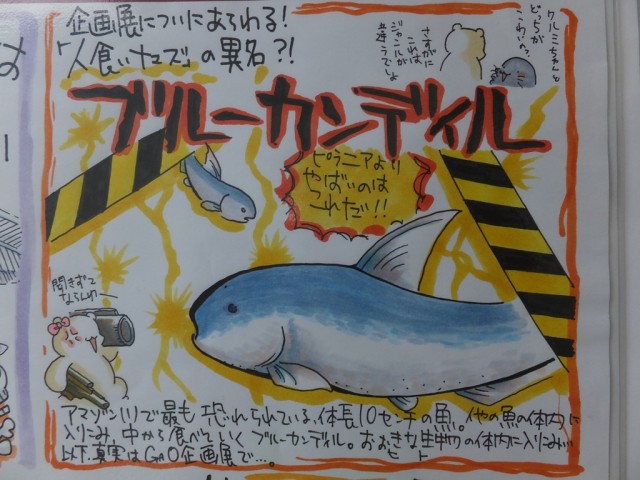 企画展についにあらわる!
「人食いナマズ」の異名?!
クルミちゃんと
どっちが
こわいの?
さすがに
これは
ジャンルが
違うでしょ
ブルーカンディル
ピラニアより
やばいのは
これだ!!
聞きずて
ならんわー
アマゾン川で最も恐れられている、体長10センチの魚。他の魚の体内に
入りこみ、中から食べていくブルーカンディル。おおきな生物の体内に入りこみ
ヒト
以下、真実はGAO企画展で…。
は